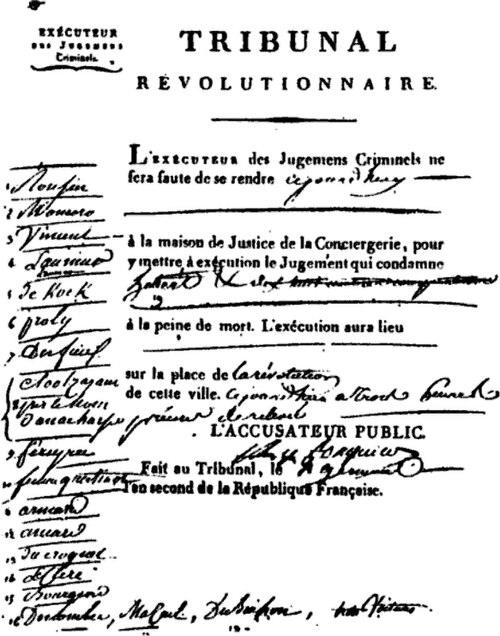 EXÉCUTEUR
DES JUGEMENS
Criminels.
TRIBUNAL
RÉVOLUTIONNAIRE.
L'EXÉCUTEUR des Jugemens Criminels ne
fera faute de se rendre cejourdhuy
à la maison de Justice de la Conciergerie, pour
y mettre à exécution le Jugement qui condamne
à la peine de mort. L'exécution aura lieu
sur la place de la révolution
de cette ville. cejourdhui
L'ACCUSATEUR PUBLIC.
Fait au Tribunal, le germinal
l'an second de la République Française.
1 Ronsin
2 Momoro
3 Vincent
4 Laumur
5 De Kock
6 proly
7 Desfieux
8
anacharsis
9 péreyra
armand
12 ancard
13 Ducroquet
14 Leclerc
15 Bourgeois
16 Descombes, Mazuel, Dubuisson, trois Voitures